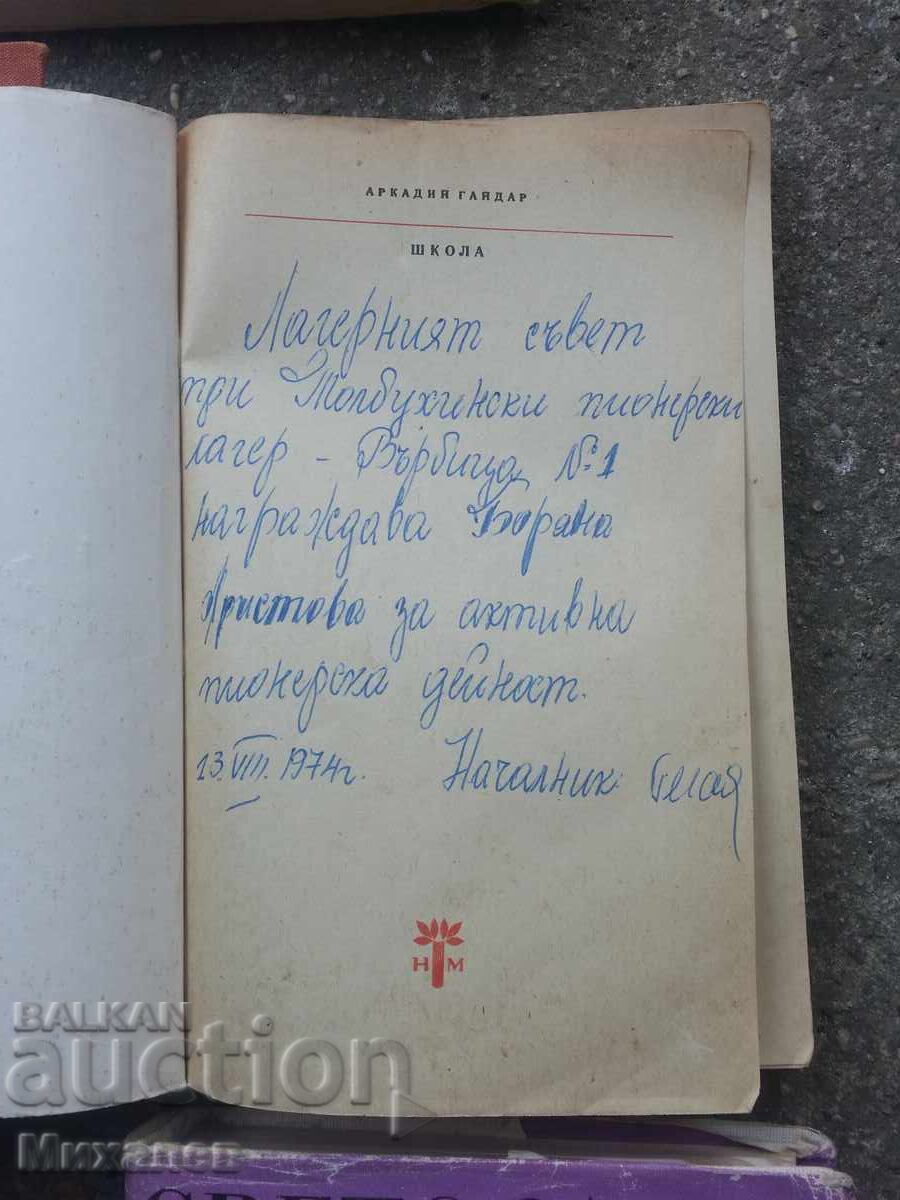 АРКАДИЙ ГАЙДАР
ШКОЛА
Лагерният съвет
при Толбухински пионерски
лагер - Върбица № 1
награждава Боряна
Христова за активна
пионерска дейност.
23.VIII.1974г. Началник:
Н М
BALKAN
auction
Михалев
СВЕТО